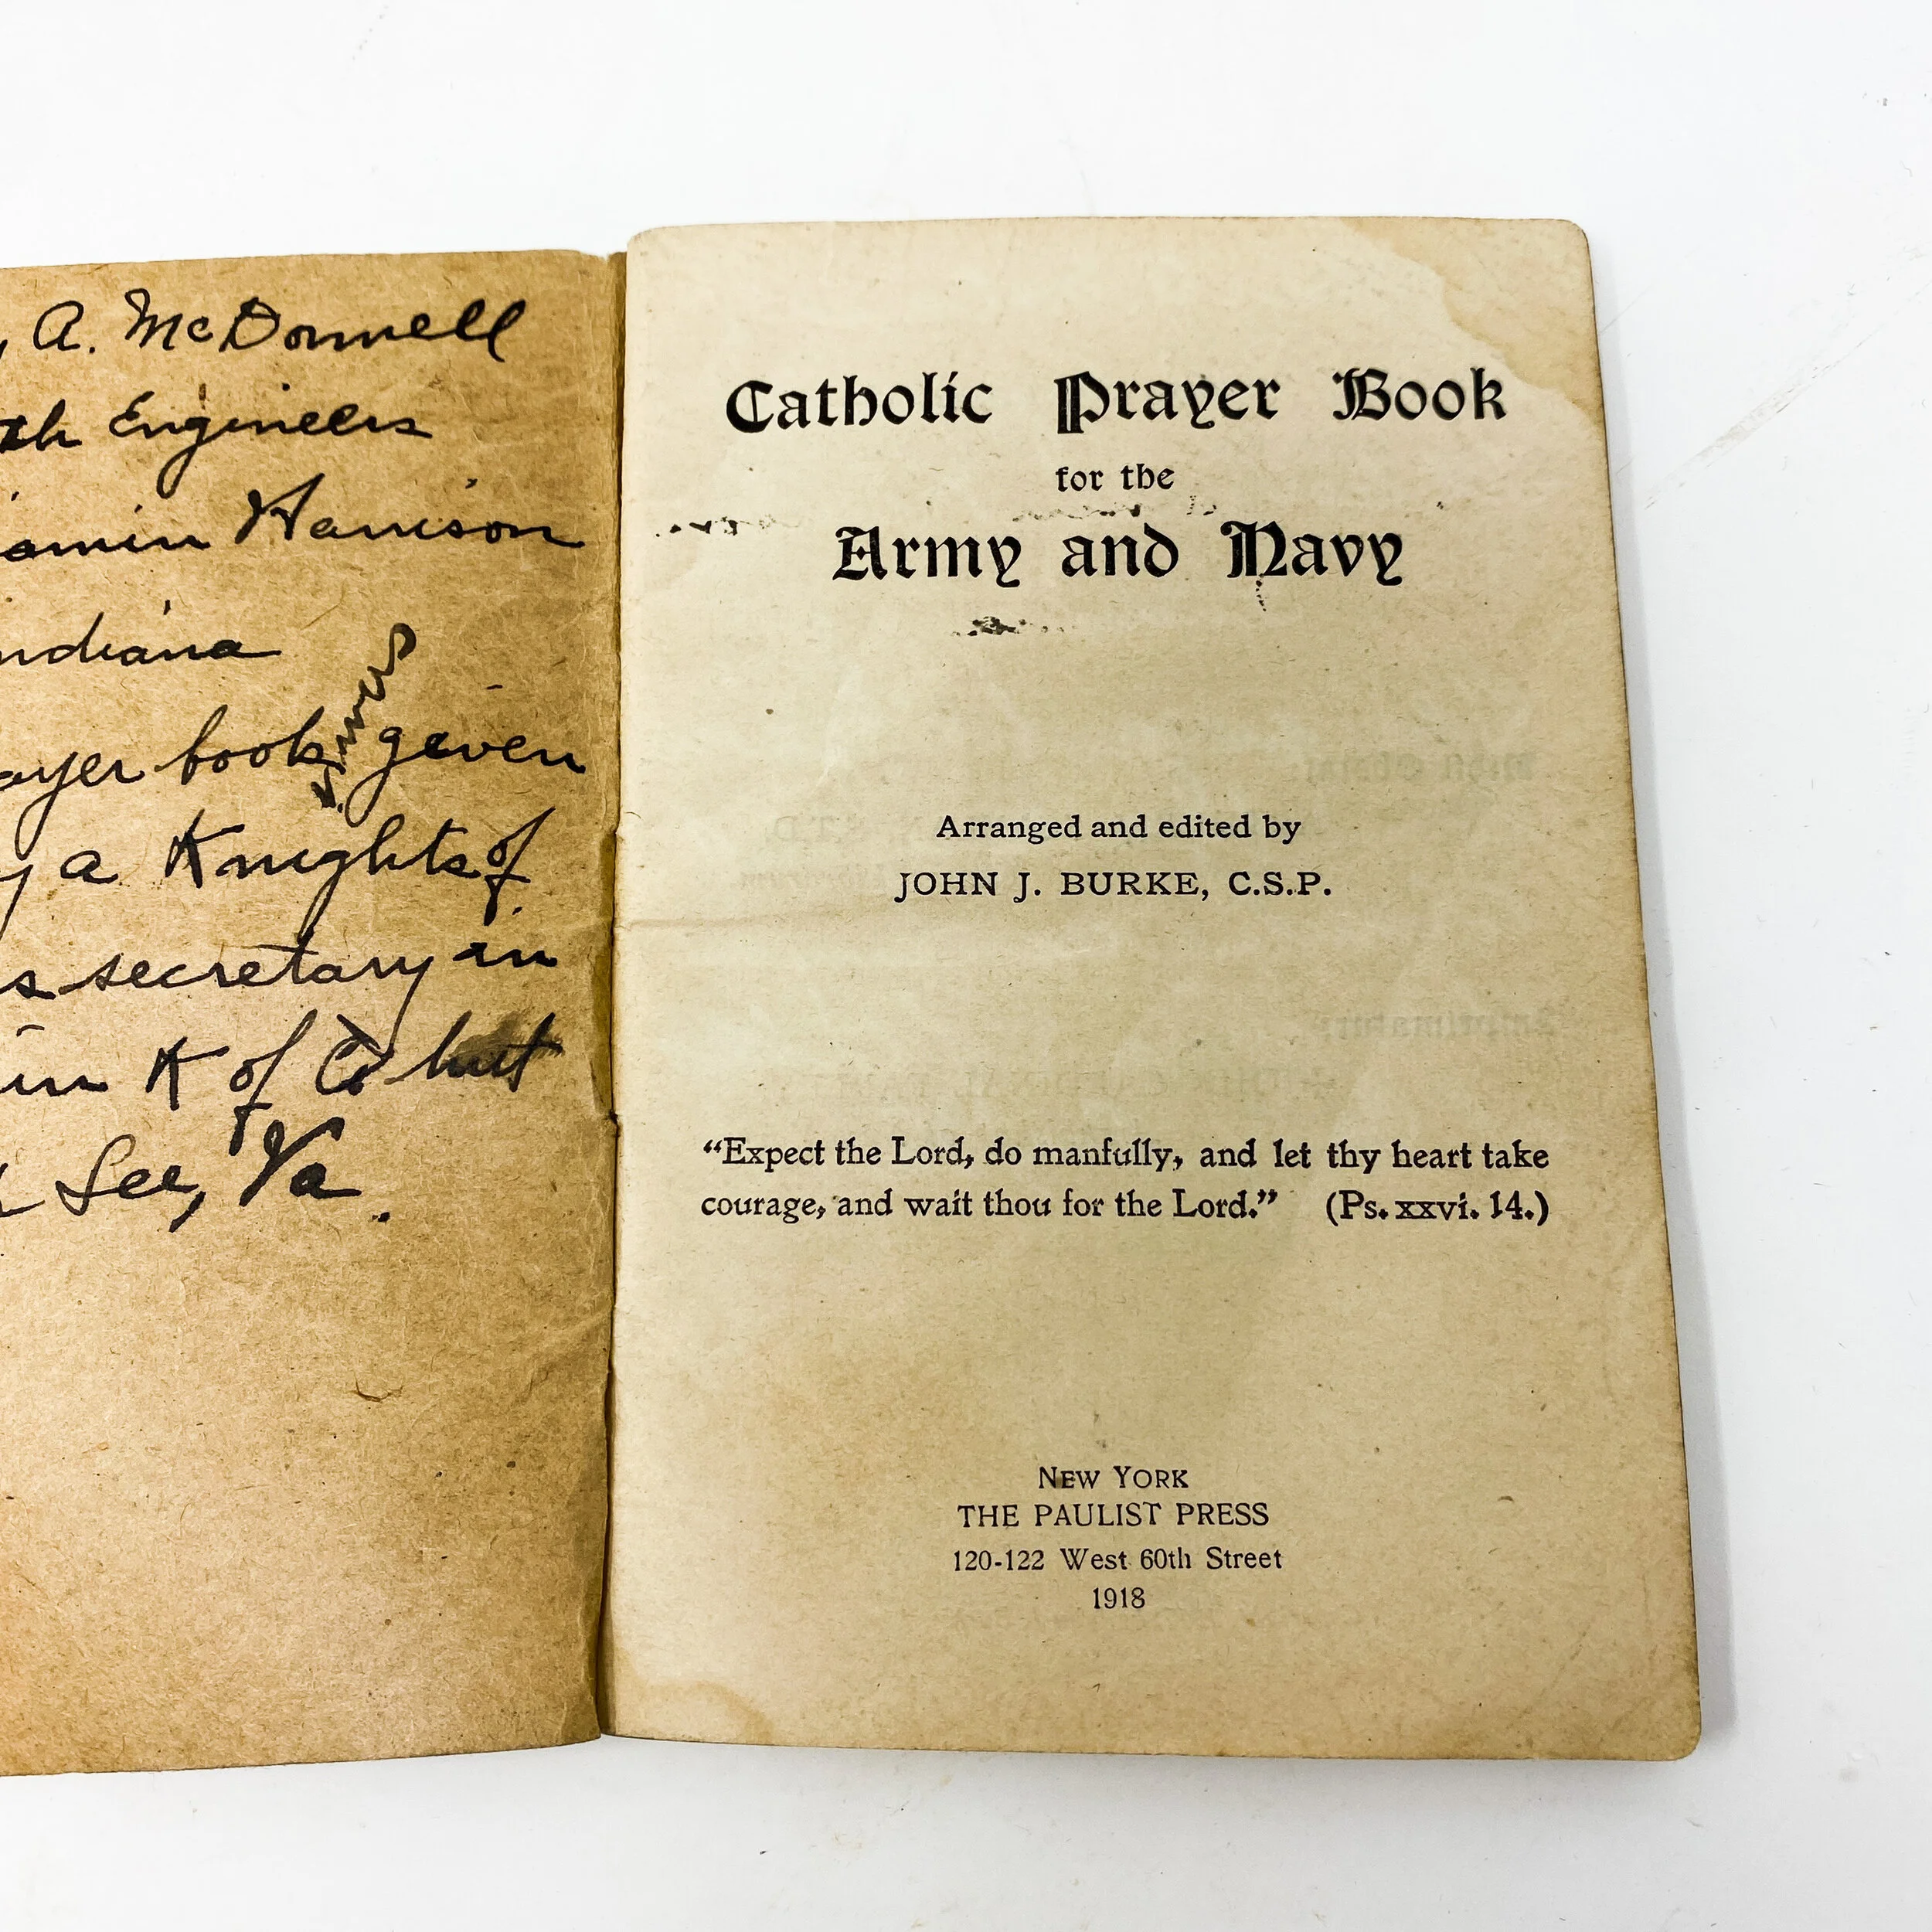 A. McDonnell
th Engineers
jamin Harrison
ndiana
ayer book given
y a Knights of
s secretary in
in K of C hut
Lee, Va.
Catholic Prayer Book
for the
Army and Navy
Arranged and edited by
JOHN J. BURKE, C.S.P.
“Expect the Lord, do manfully, and let thy heart take
courage, and wait thou for the Lord.” (Ps. xxvi. 14.)
NEW YORK
THE PAULIST PRESS
120-122 West 60th Street
1918